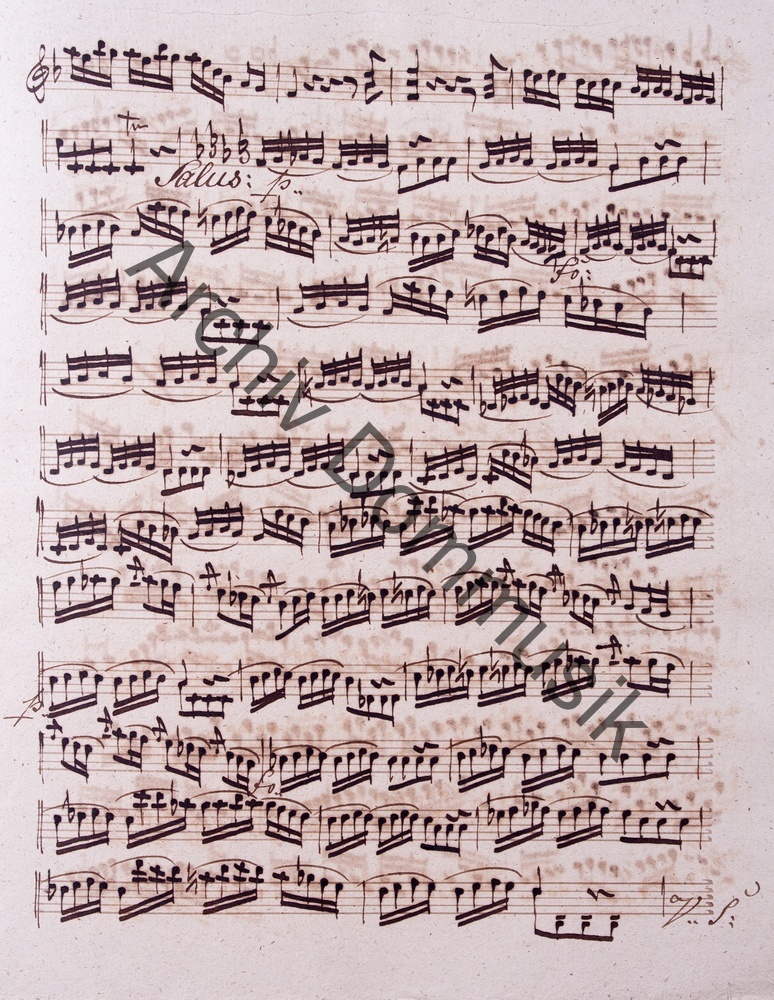 tr
Salus: p:
fo:
p:
fo:
V: S:
Archiv Dommusik